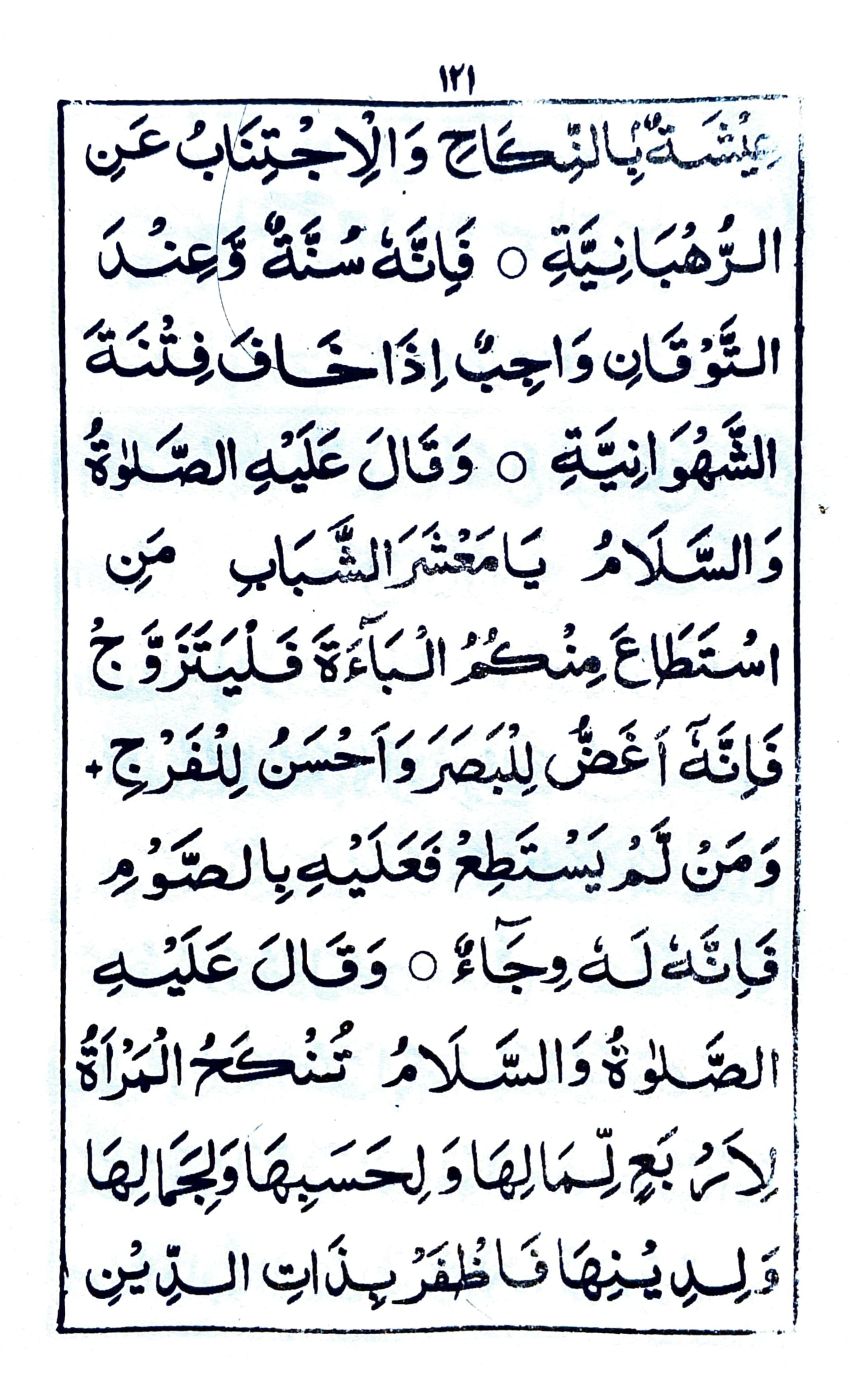 ١٢١
عِيْشَةٌ بِالنِّكَاحِ وَالْاِجْتِنَابُ عَنِ
الرُّهْبَانِيَّةِ ○ فَاِنَّهٗ سُنَّةٌ وَّعِنْدَ
التَّوْقَانِ وَاجِبٌ اِذَا خَافَ فِتْنَةَ
الشَّهْوَانِيَّةِ ○ وَقَالَ عَلَيْهِ الصَّلٰوةُ
وَالسَّلَامُ يَامَعْشَرَ الشَّبَابِ مَنِ
اسْتَطَاعَ مِنْكُمُ الْبَآءَةَ فَلْيَتَزَوَّجْ
فَاِنَّهٗٓ اَغَضُّ لِلْبَصَرَ وَاَحْسَنُ لِلْفَرْجِ +
وَمَنْ لَّمْ يَسْتَطِعْ فَعَلَيْهِ بِالصَّوْمِ
فَاِنَّهٗ لَهٗ وِجَآءٌ ○ وَقَالَ عَلَيْهِ
الصَّلٰوةُ وَالسَّلَامُ تُنْكَحُ الْمَرْاَةُ
لِاَرْبَعٍ لِّمَالِهَا وَلِحَسَبِهَا وَلِجَمَالِهَا
وَلِدِيْنِهَا فَاظْفَرْ بِذَاتِ الدِّيْنِ